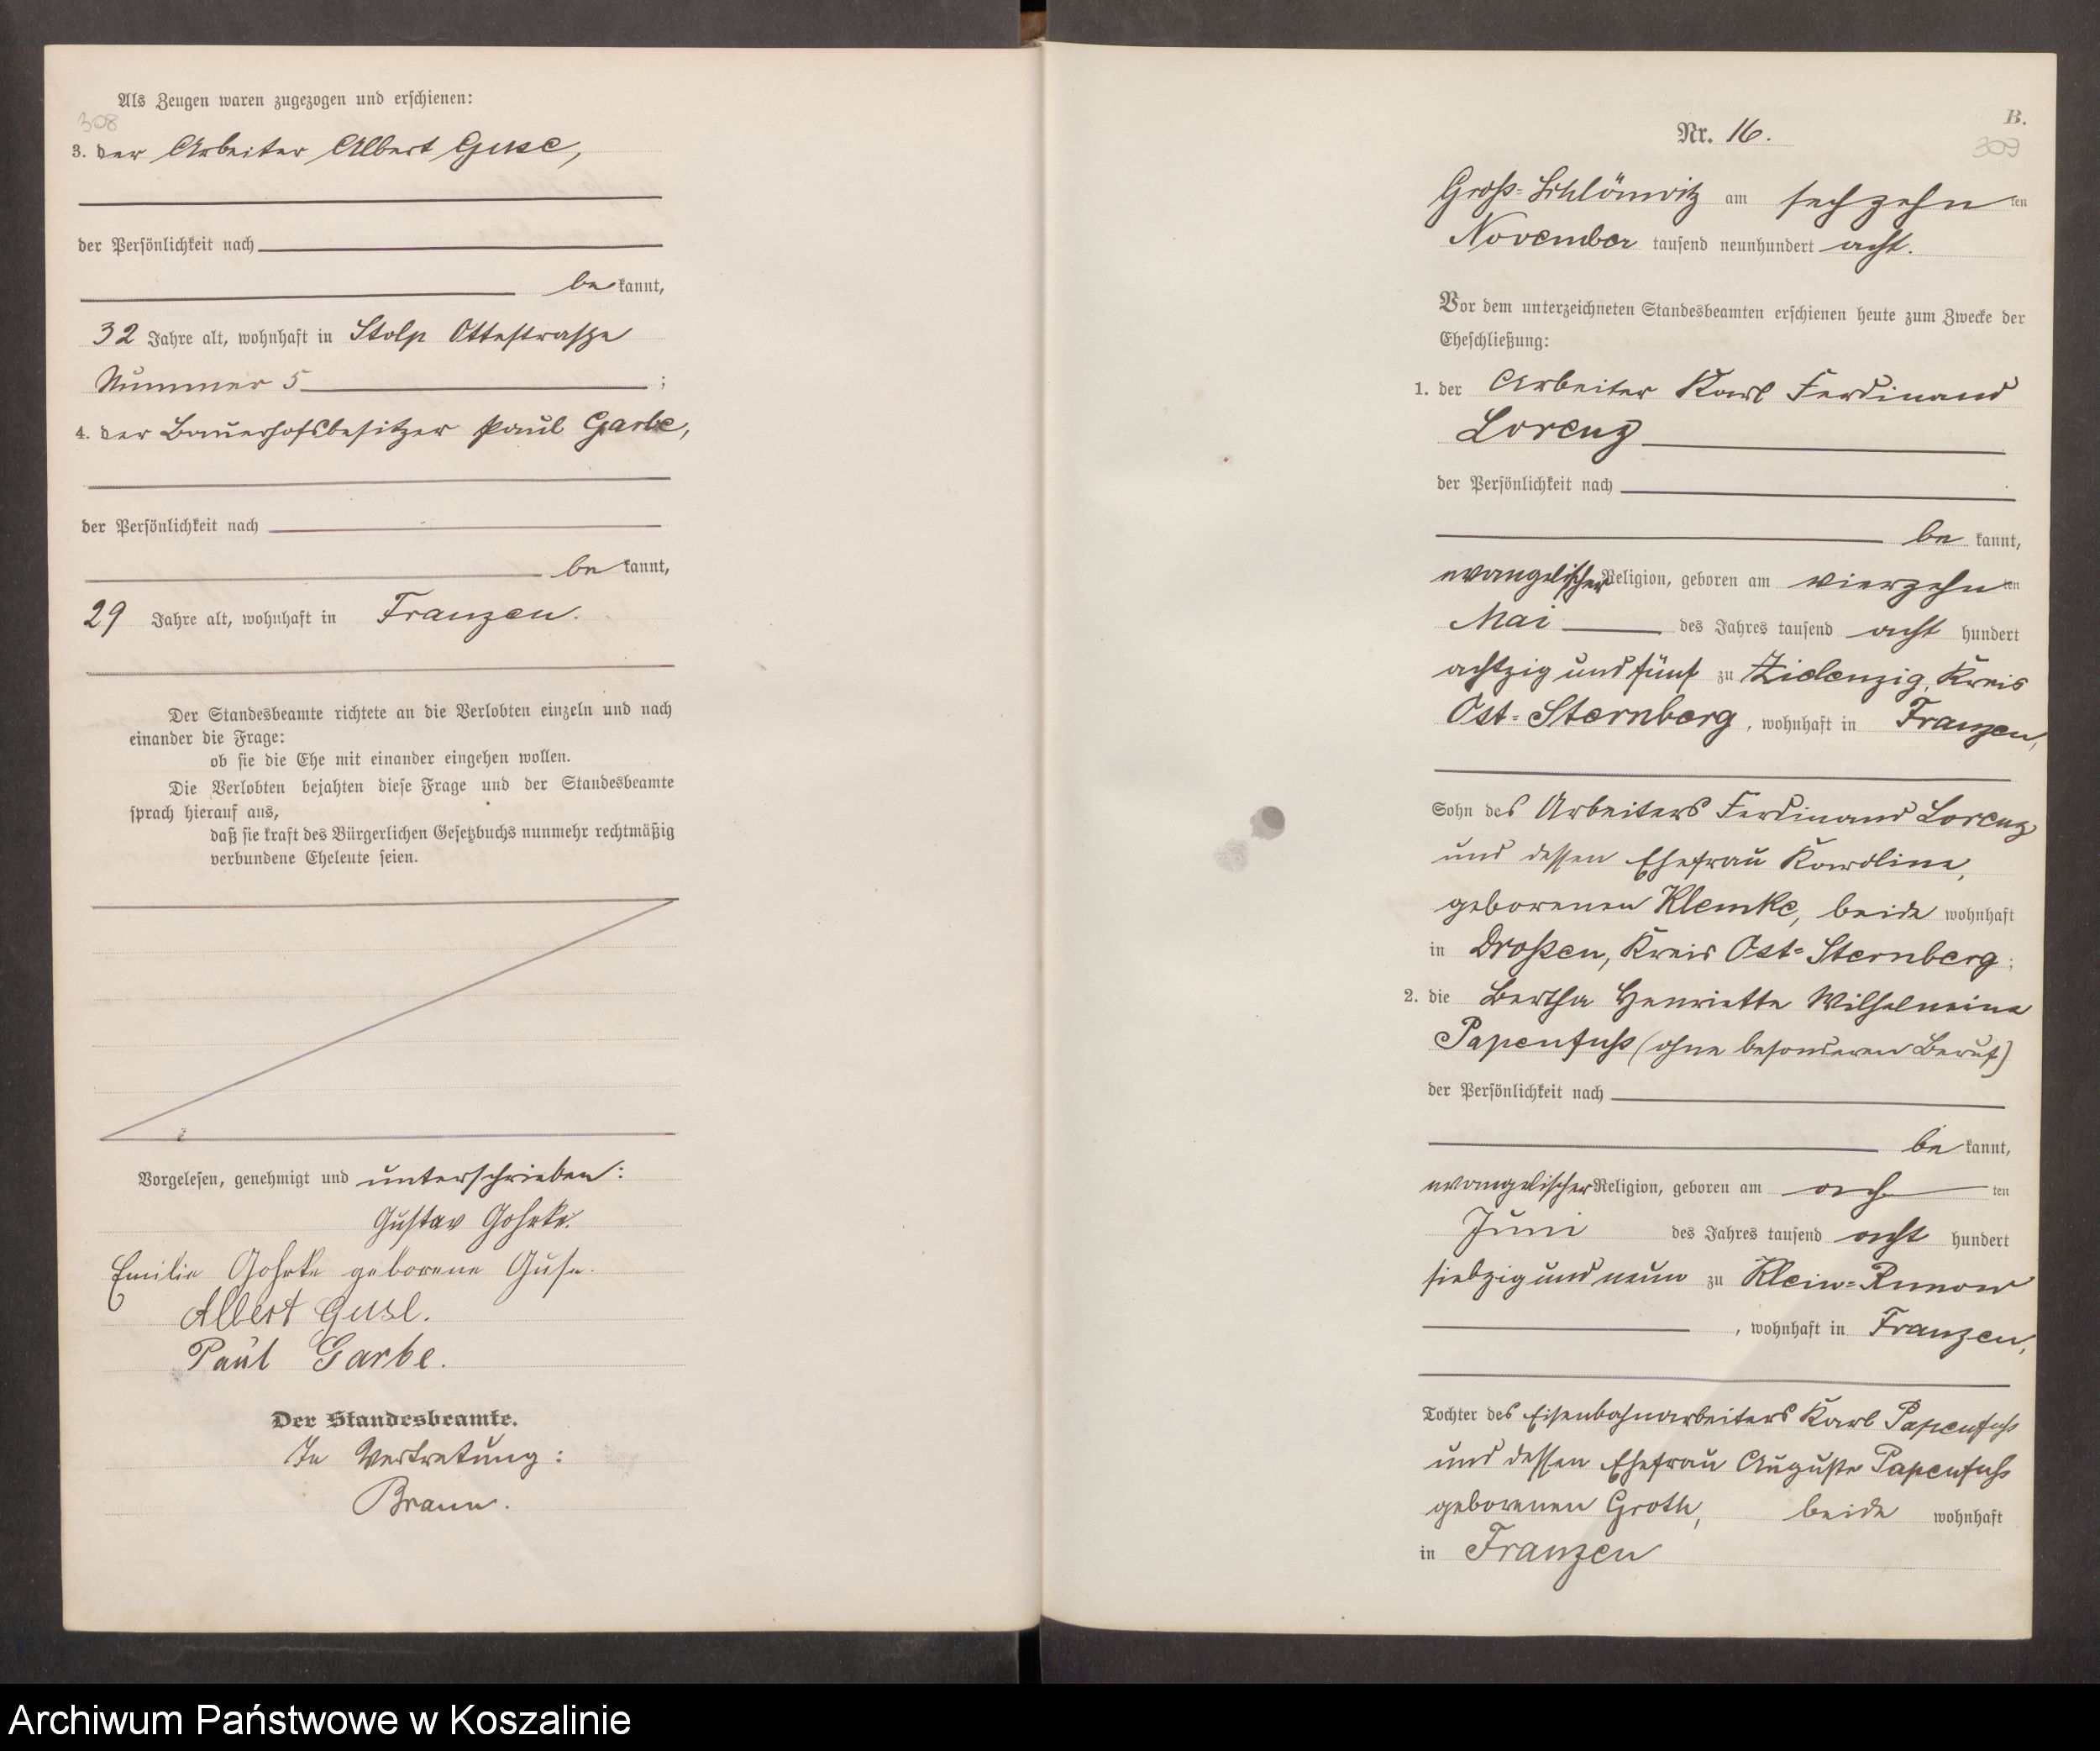 Als Zeugen waren zugezogen und erschienen:
308
3. der Arbeiter Albert Guse,
der Persönlichkeit nach
be kannt,
32 Jahre alt, wohnhaft in Stolp Ottostrasze
Nummer 5 ;
4. der Bauerhofsbesitzer Paul Garbe,
der Persönlichkeit nach
be kannt,
29 Jahre alt, wohnhaft in Franzen.
Der Standesbeamte richtete an die Verlobten einzeln und nach
einander die Frage:
ob sie die Ehe mit einander eingehen wollen.
Die Verlobten bejahten diese Frage und der Standesbeamte
sprach hierauf aus,
daß sie kraft des Bürgerlichen Gesetzbuchs nunmehr rechtmäßig
verbundene Eheleute seien.
Vorgelesen, genehmigt und unterschrieben:
Gustav Gohrke.
Emilie Gohrke geborene Guse.
Albert Guse.
Paul Garbe.
Der Standesbeamte.
In Vertretung:
Braun.
B.
Nr. 16.
309
Groß-Schlönwitz am sechzehn ten
November tausend neunhundert acht.
Vor dem unterzeichneten Standesbeamten erschienen heute zum Zwecke der
Eheschließung:
1. der Arbeiter Karl Ferdinand
Lorenz
der Persönlichkeit nach
be kannt,
evangelischer Religion, geboren am vierzehn ten
Mai des Jahres tausend acht hundert
achtzig und fünf zu Zielenzig, Kreis
Ost-Sternberg, wohnhaft in Franzen,
Sohn des Arbeiters Ferdinand Lorenz
und dessen Ehefrau Karoline,
geborenen Klemke, beide wohnhaft
in Droßen, Kreis Ost-Sternberg;
2. die Bertha Henriette Wilhelmine
Papenfuß (ohne besonderen Beruf)
der Persönlichkeit nach
be kannt,
evangelischer Religion, geboren am ach ten
Juni des Jahres tausend acht hundert
siebzig und neun zu Klein-Runow
, wohnhaft in Franzen,
Tochter des Eisenbahnarbeiters Karl Papenfuß
und dessen Ehefrau Auguste Papenfuß
geborenen Groth, beide wohnhaft
in Franzen
Archiwum Państwowe w Koszalinie